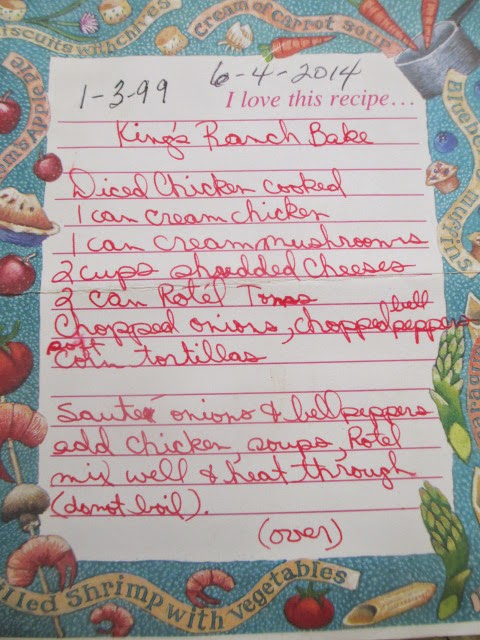 iscuits with chives
Cream of Carrot Soup
1-3-99 6-4-2014
I love this recipe...
King's Ranch Bake
Diced Chicken cooked
1 can cream chicken
1 can cream mushrooms
2 cups shredded Cheeses
2 can Rotél Toms
Chopped onions, chopped bell peppers
soft corn tortillas
Sauteé onions & bell peppers
add chicken, soups, Rotel
mix well & heat through
(do not boil).
(over)
Apple Pie
muffins
illed Shrimp with vegetables